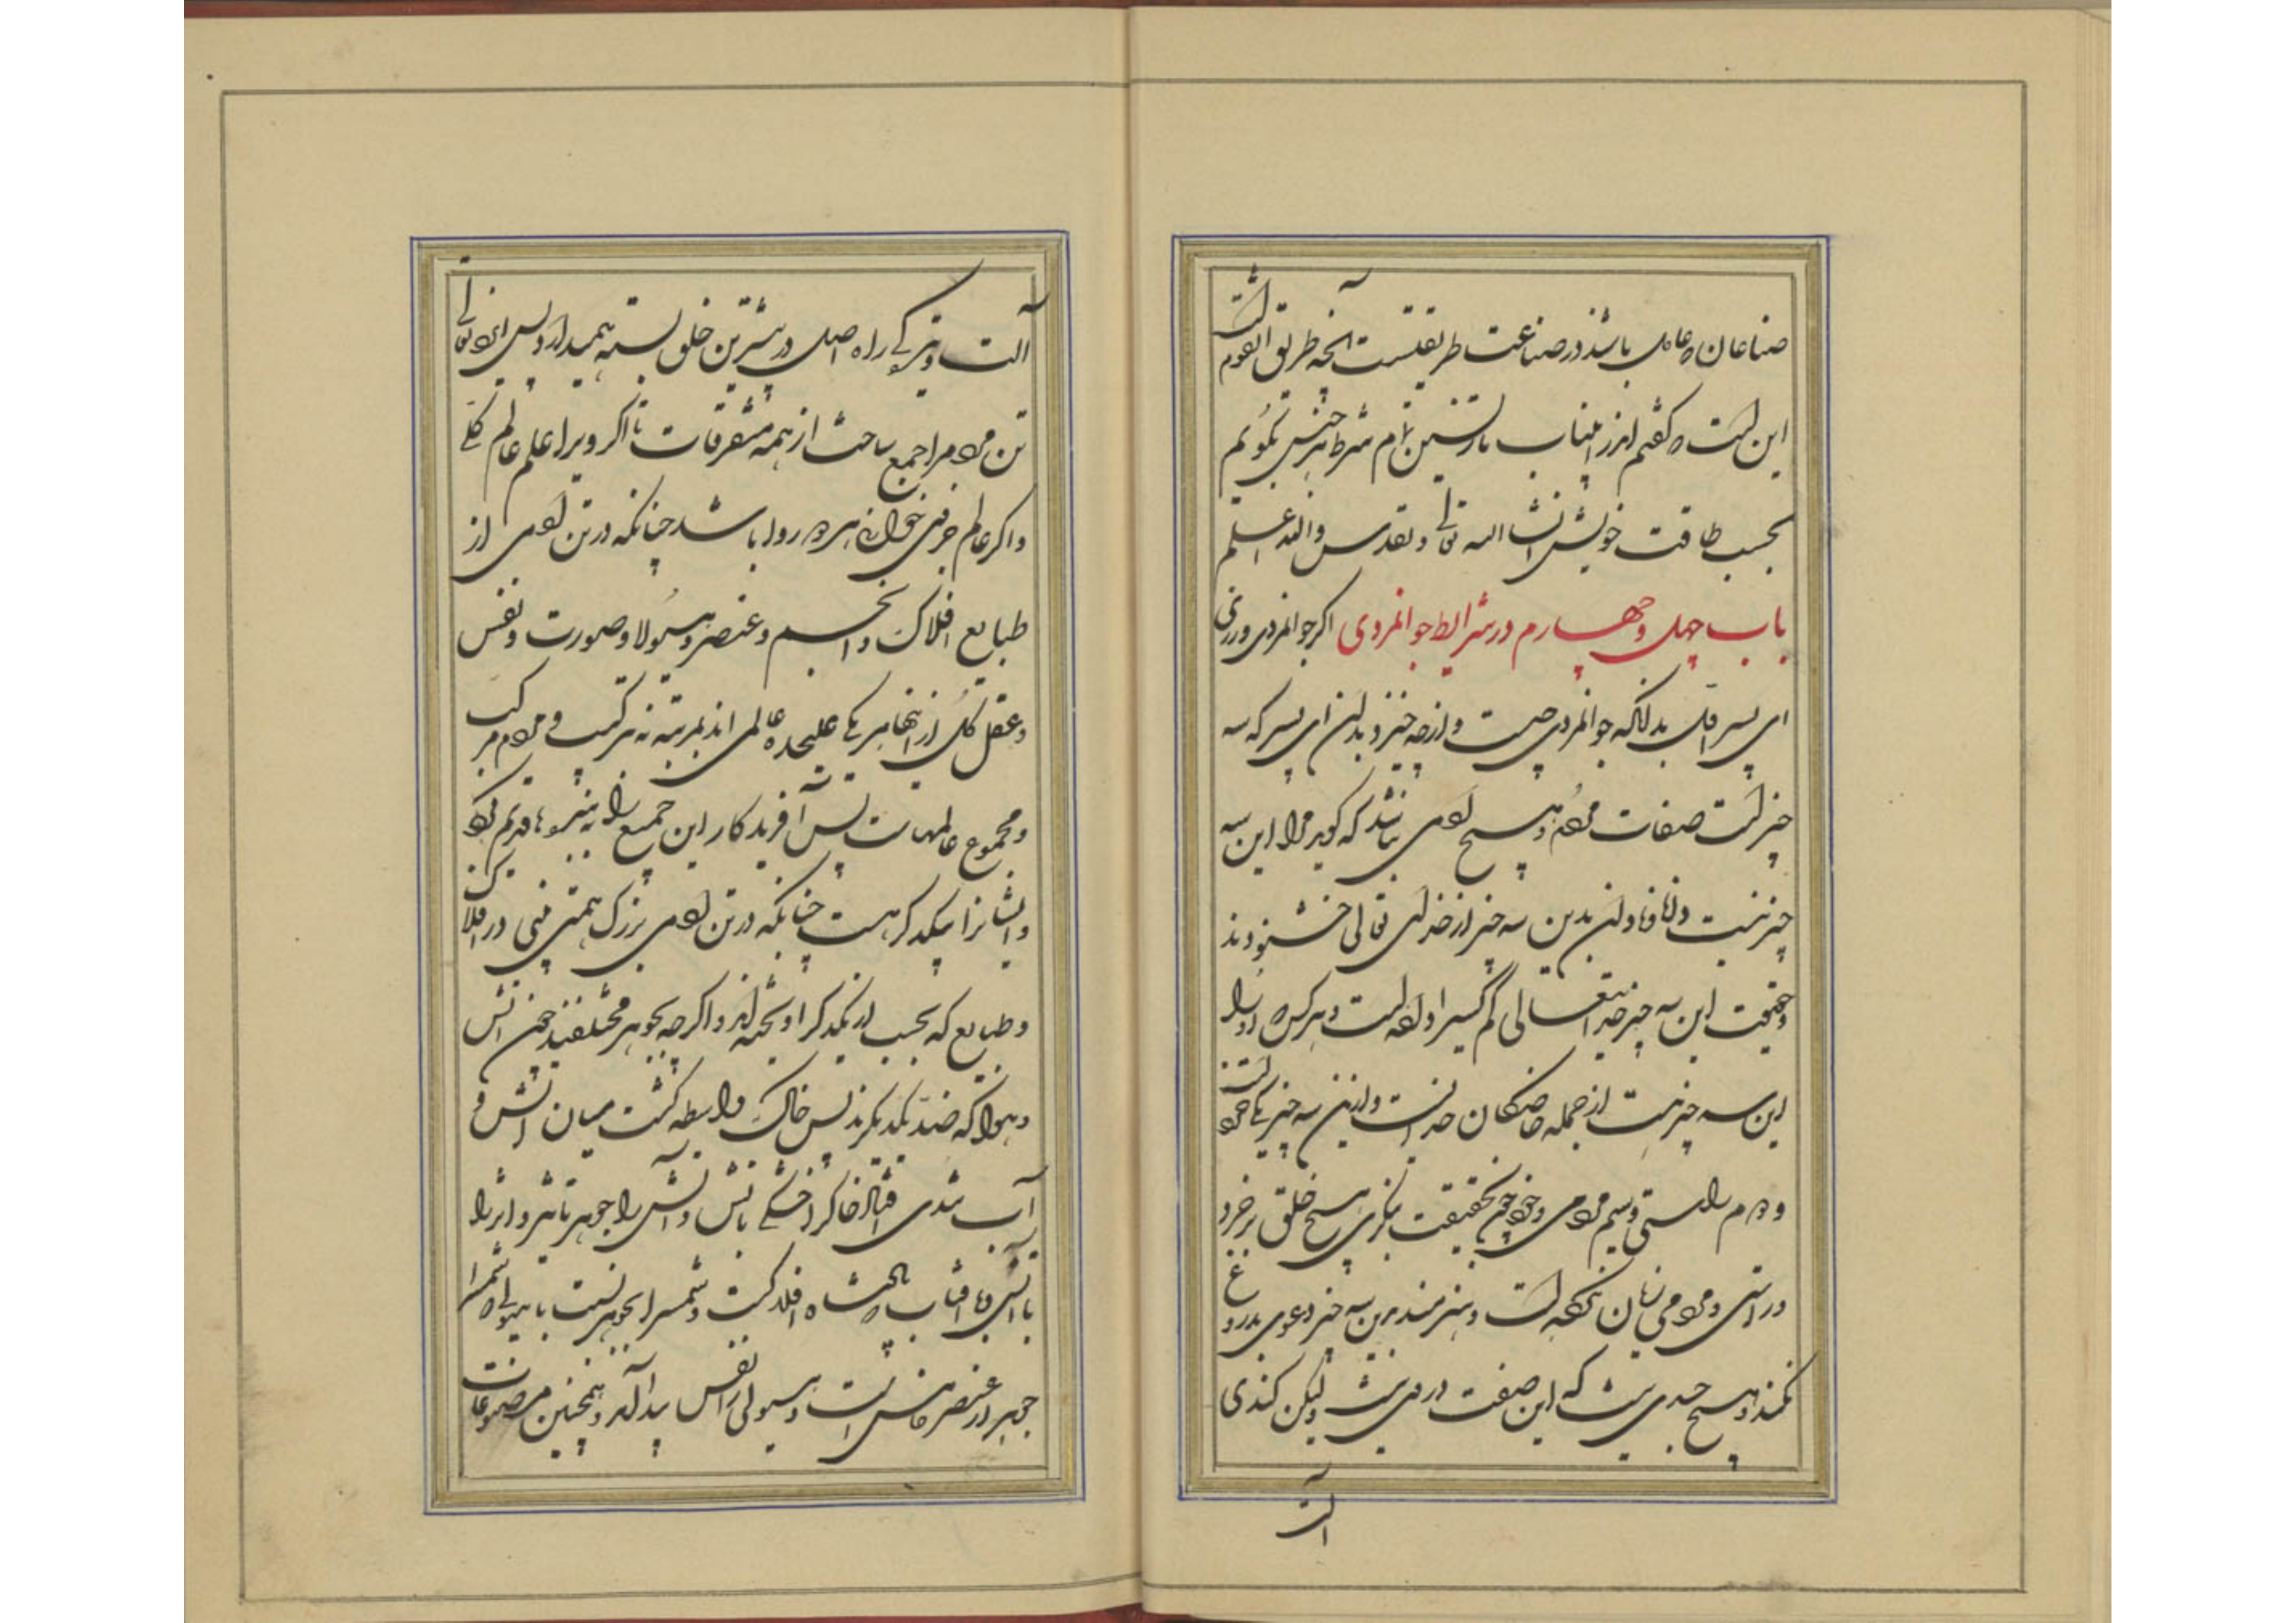 صناعان که عامل باشند در صناعت طریقتست آنچه طریق القوم است
این است که گفتم اندرین باب تا دانسته این تمام شرط هر جنس بگویم
بحسب طاقت خویش انشا الله تعالی و تقدس والله اعلم
باب چهل و چهارم در شرایط جوانمردی اگر جوانمردی ورزی
ای پسر اول بدانکه جوانمردی چیست و از چه خیزد بدان ای پسر که سه
چیز است صفات مردم و هیچ آدمی نباشد که گوید مرا این سه
چیز نیست دانا و نادان بدین سه چیز از خدای تعالی خشنودند
و حقیقت این سه چیز خدایتعالی کم کسی را داده است و هر کس که او را
این سه چیز هست از جمله خاصگان خداست و ازین سه چیز یکی خرد است
و دوم راستی و سیم مردمی و چون بحقیقت بنگری هیچ خلق بر خرد
و راستی و مردمی زیان نکرده است و هنرمند برین سه چیز دعوی بدروغ
نکند و هیچ جسدی نیست که این صفت در وی نیست ولیکن کندی
آلت
آلت و تیرگی راه اصل در بیشترین خلق بسته همیدارد پس ایزد تعالی
تن مردم را جمع ساخت از همه متفرقات تا اگر ویرا علم عالم کلی
و اگر عالم جزوی خوانی هر دو روا باشد چنانکه در تن آدمی از
طبایع افلاک و انجم و عنصر و هیولا و صورت و نفس
و عقل کل از اینها هر یکی علیحده عالمی اند بمرتبه نه ترکیب و مردم مرکب
و مجموع عالمهاست پس آفریدکار این جمع را به بندها قدیم کرد
و ایشانرا بیکدیگر ببست چنانکه در تن آدمی بزرگ همی بینی در افلاک
و طبایع که بحسب از یکدیگر آویخته اند و اگر چه بجوهر مختلفند چون آتش
و هوا که ضد یکدیگرند پس خاک واسطه گشت میان آتش و
آب شدی خاک را خشکی با آتش و آتش را جوهر تاثیر و اثر را
با آتش و آفتاب پادشاه افلاکست و شمس را بجوهر نسبت با هیولی که شمس را
جوهر از عنصر خامس است و هیولی را نفس پیدا آمد و همچنین مصنوعات